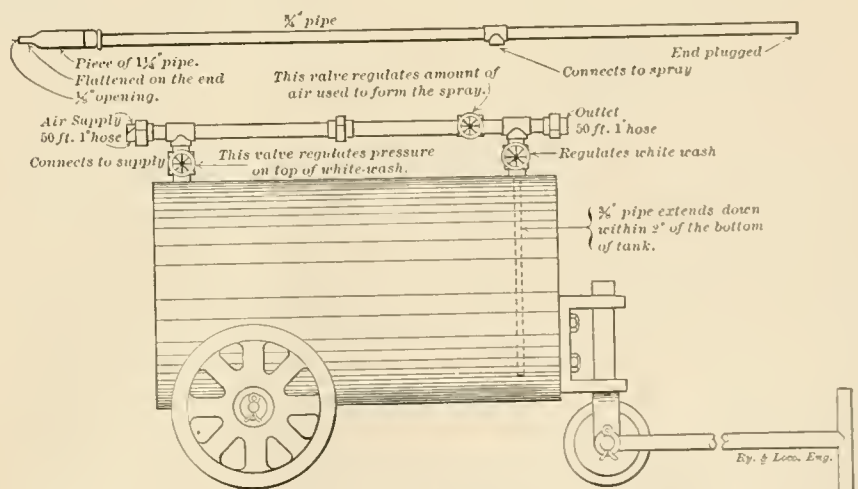 ¾" pipe
Piece of 1¼" pipe.
Flattened on the end
⅛" opening.
This valve regulates amount of
air used to form the spray.
Connects to spray
End plugged
Air Supply
50 ft. 1" hose
Outlet
50 ft. 1" hose
Connects to supply
This valve regulates pressure
on top of white-wash.
Regulates white wash
pipe extends down
within 2" of the bottom
of tank.
Ry. & Loco. Eng.